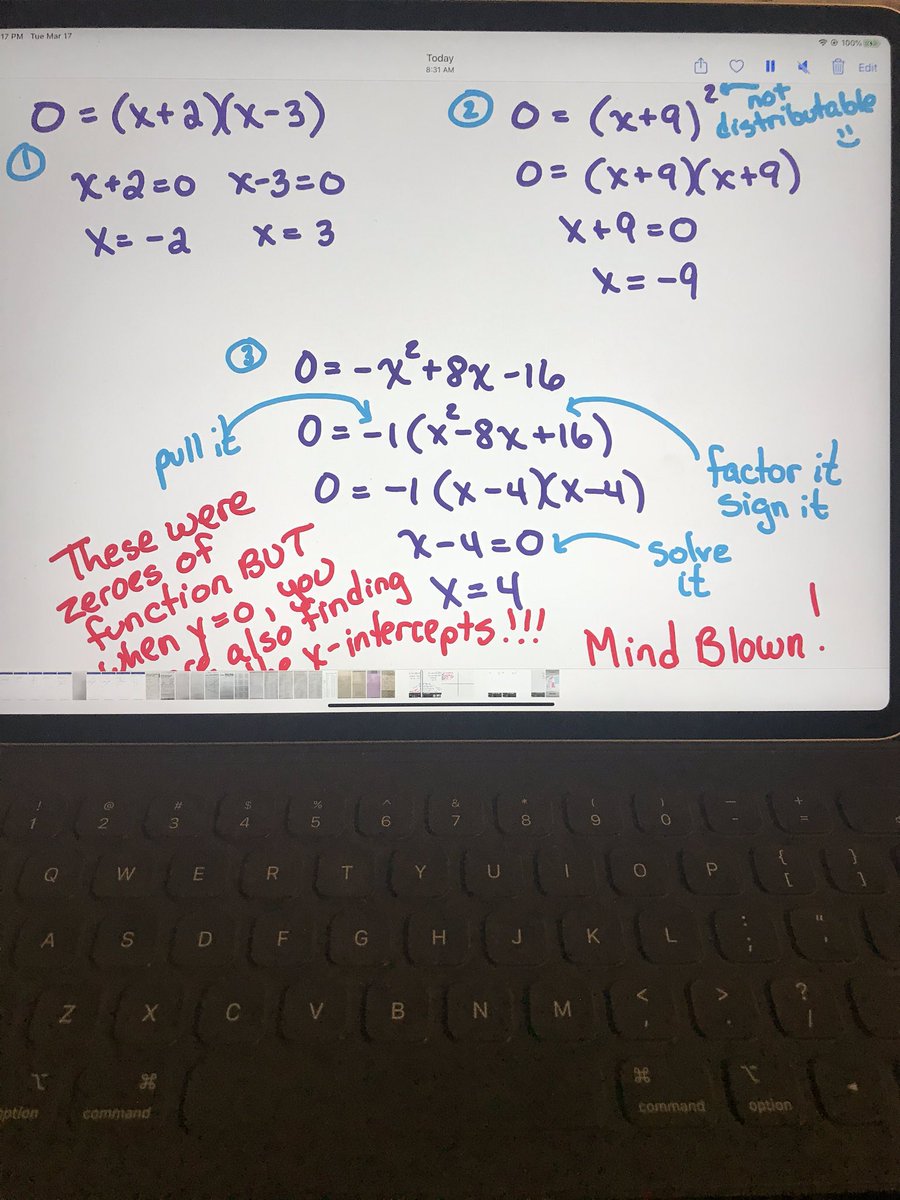 17 PM Tue Mar 17
100%
Today
8:31 AM
Edit
0 = (x+2)(x-3)
①
x+2=0 x-3=0
x= -2 x= 3
② 0= (x+9)² not
distributable
0= (x+9)(x+9)
x+9=0
x= -9
③ 0=-x²+8x-16
pull it
0=-1(x²-8x+16)
0=-1(x-4)(x-4)
factor it
sign it
x-4=0
solve
it
x=4
These were
zeroes of
function BUT
when y=0, you
also finding
x-intercepts!!!
Mind Blown!
! @ # $ % ^ & * ( ) _ +
1 2 3 4 5 6 7 8 9 0 - =
Q W E R T Y U I O P { [ } ]
A S D F G H J K L : ; " '
Z X C V B N M < , > . ? /
⌥ ⌘ ⌘ ⌥
option command command option